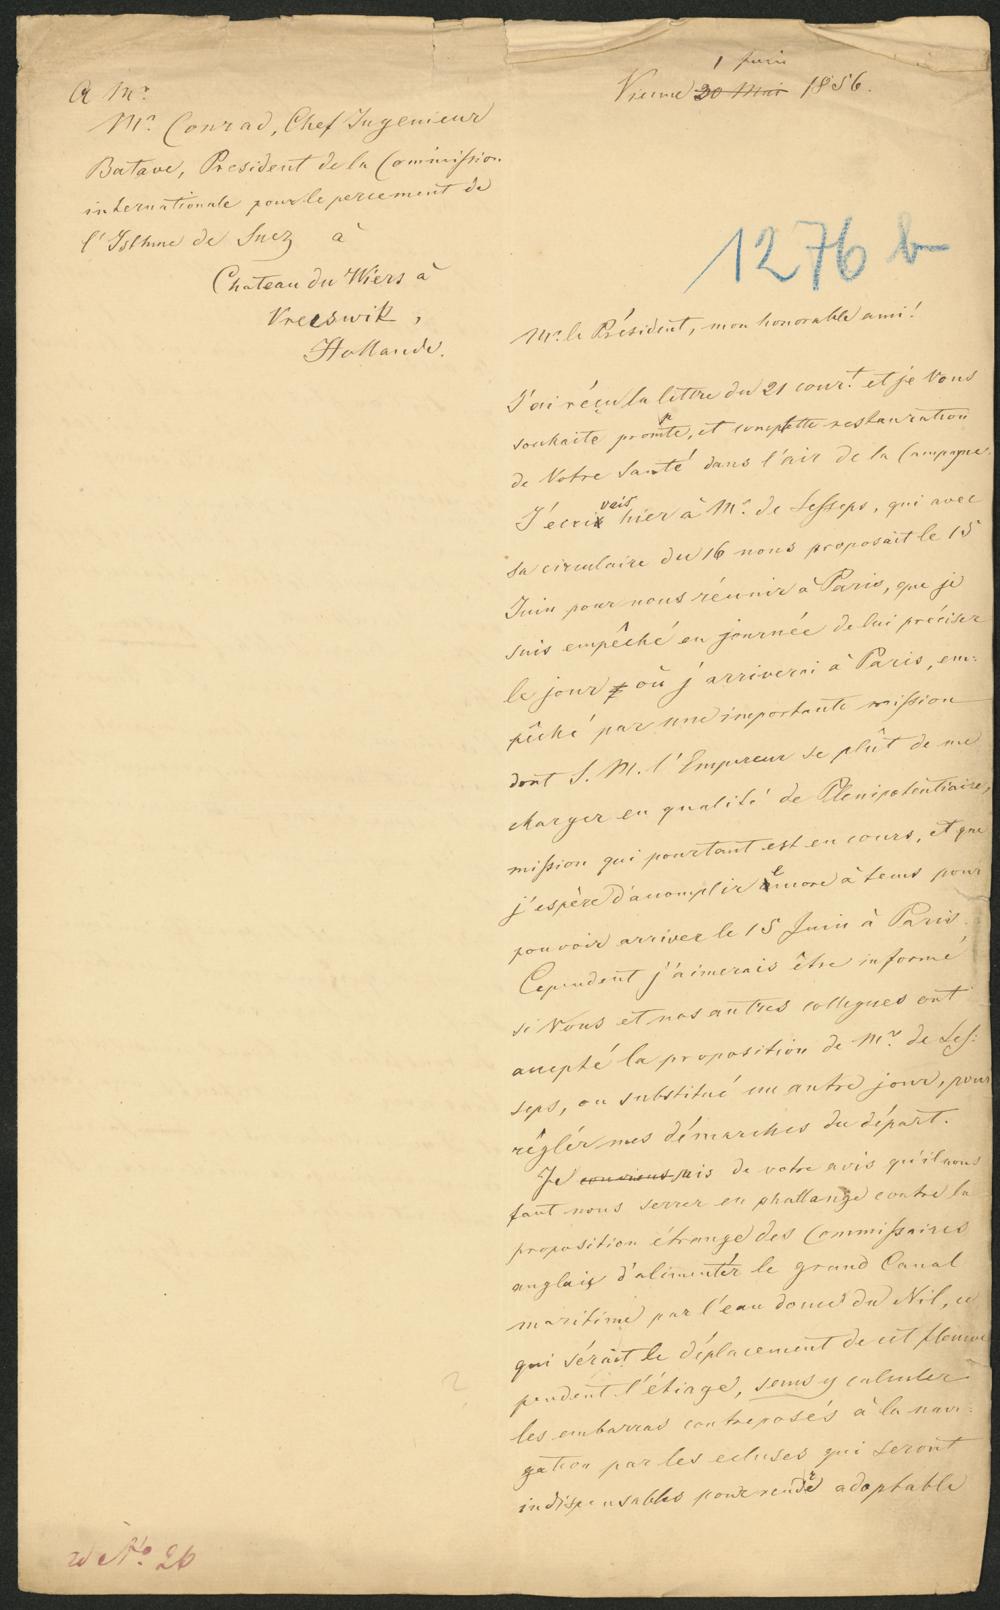 A Mr.
Mr. Conrad, Chef Ingenieur
Batave, President de la Commission
internationale pour le percement de
l'Isthme de Suez à
Chateau du Wiers à
Vreeswik,
Hollande.
1 Juin
Vienne 30 Mai 1856.
1276 b
Mr. le Président, mon honorable ami!
J'ai réçu la lettre du 21 cour.t et je Vous
souhaite promte, et complette restauration
de Votre Santé dans l'air de la Campagne.
J'ecrivais hier à Mr. de Lesseps, qui avec
sa circulaire du 16 nous proposait le 15
Juin pour nous réunir à Paris, que je
suis empêché en journée de lui préciser
le jour où j'arriverai à Paris, em-
pêché par une importante mission
dont S. M. l'Empereur se plût de me
charger en qualité de Plenipotentiaire,
mission qui pourtant est en cours, et que
j'espère d'accomplir encore à tems pour
pouvoir arriver le 15 Juin à Paris.
Cependent j'aimerais être informé
si Vous et nos autres collegues ont
accepté la proposition de Mr. de Les-
seps, ou substitué un autre jour, pour
réglér mes démarches du départ.
Je conviens suis de votre avis qu'il nous
faut nous serrer en phallange contre la
proposition étrange des Commissaires
anglais d'alimentér le grand Canal
maritime par l'eau douce du Nil, ce
qui sérait le déplacement de cet fleuve
pendent l'étiage, sens y calculer
les embarras contreposés à la navi-
gation par les ecluses qui seront
indispensables pour rendre adoptable
ad No. 26